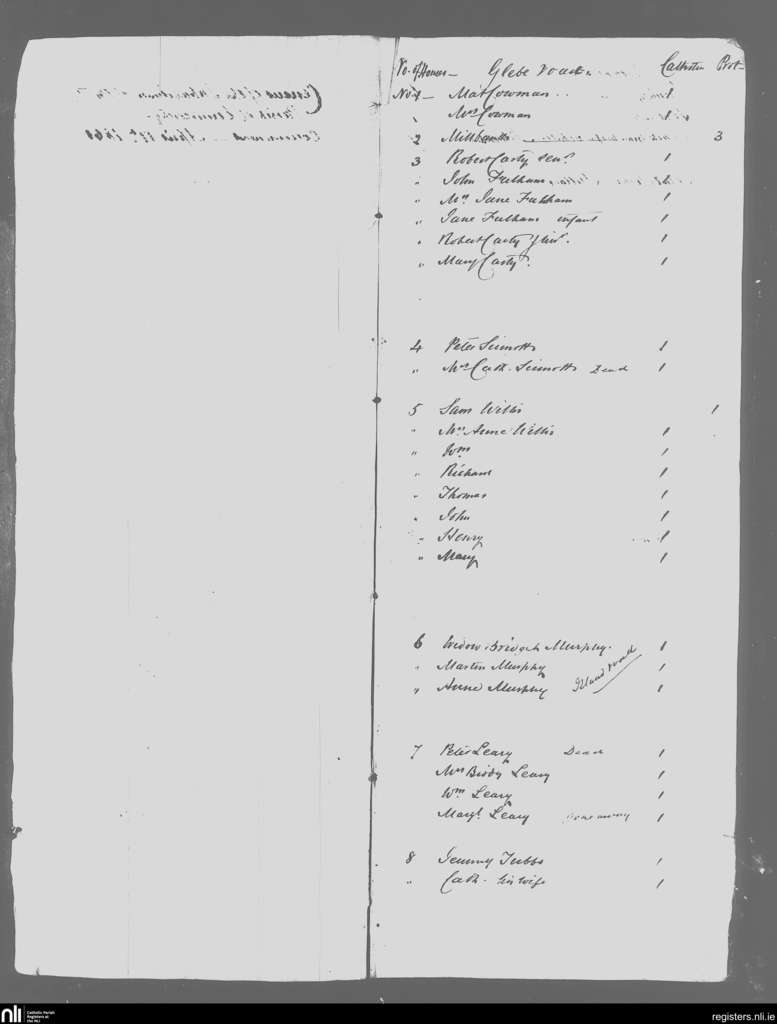 No. of Houses — Glebe road Catholics Prot—
No. 1 — Mat Cowman 1
" Mrs Cowman
2 Millbank 3
3 Robert Carty Senr. 1
" John Fulham 1
" Mrs Jane Fulham 1
" Jane Fulham infant 1
" Robert Carty Junr. 1
" Mary Carty 1
4 Peter Sinnotts 1
" Mrs Cath. Sinnotts Dead 1
5 Sam Willis 1
" Mrs Anne Willis 1
" Wm 1
" Richard 1
" Thomas 1
" John 1
" Henry 1
" Mary 1
6 Widow Bridget Murphy. 1
" Martin Murphy 1
" Anne Murphy Island road 1
7 Peter Leary Dead 1
Mrs Biddy Leary 1
Wm Leary 1
Margt. Leary gone away 1
8 Jemmy Tubbs 1
" Cath - his wife 1
nli Catholic Parish Registers at the NLI
registers.nli.ie